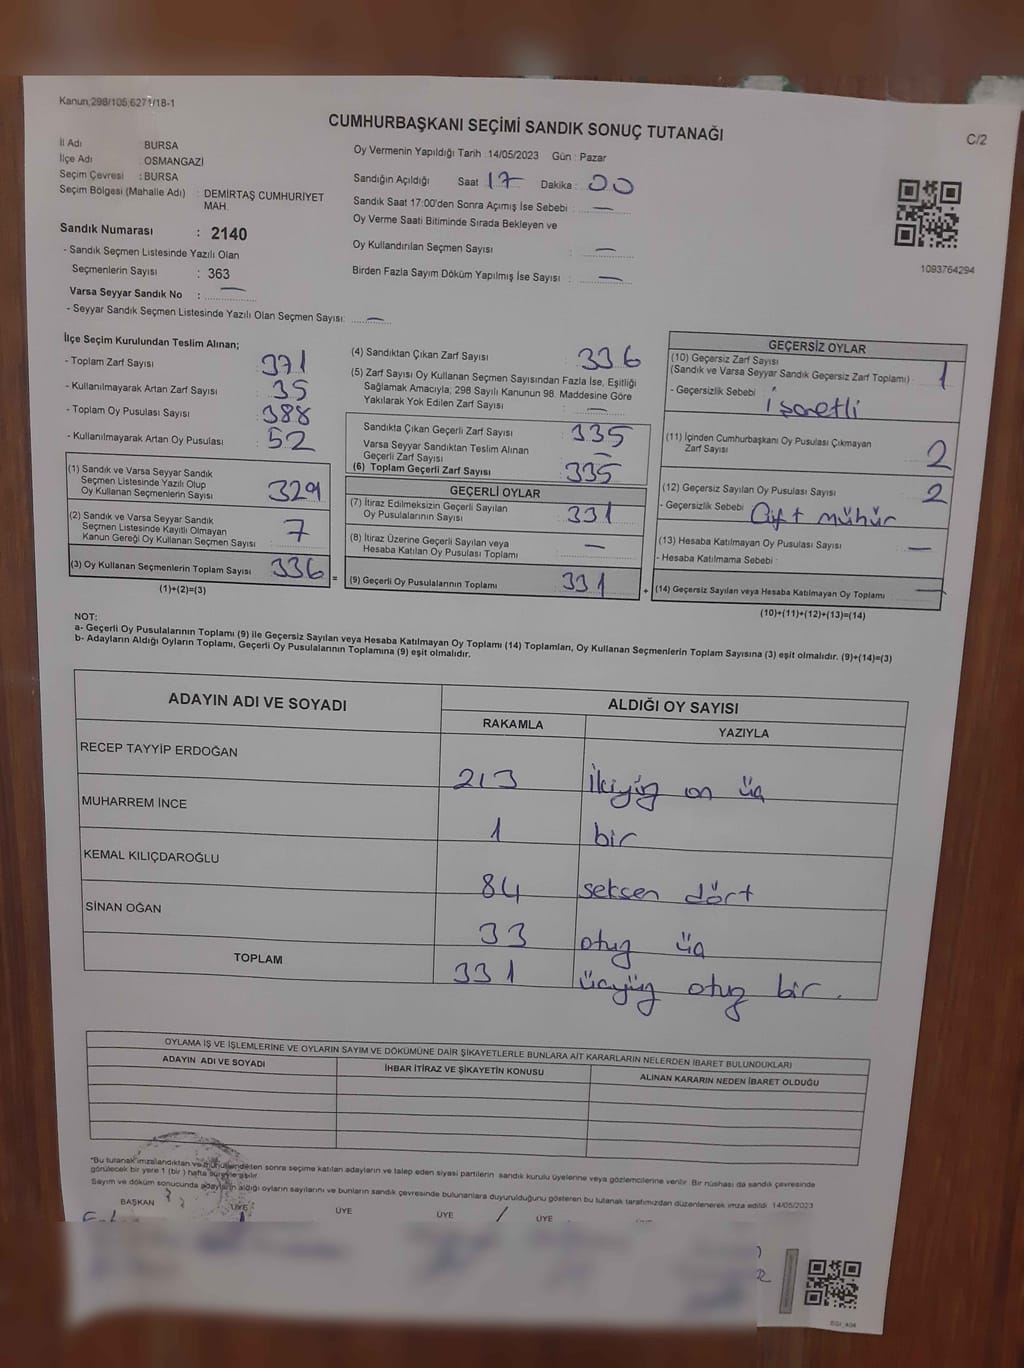 Kanun;298/105,6271/18-1
CUMHURBAŞKANI SEÇİMİ SANDIK SONUÇ TUTANAĞI
C/2
İl Adı BURSA
İlçe Adı : OSMANGAZİ
Seçim Çevresi : BURSA
Seçim Bölgesi (Mahalle Adı) : DEMİRTAŞ CUMHURİYET
MAH.
Sandık Numarası : 2140
- Sandık Seçmen Listesinde Yazılı Olan
Seçmenlerin Sayısı : 363
Varsa Seyyar Sandık No : —
- Seyyar Sandık Seçmen Listesinde Yazılı Olan Seçmen Sayısı: —
Oy Vermenin Yapıldığı Tarih : 14/05/2023 Gün : Pazar
Sandığın Açıldığı Saat 17 Dakika : 00
Sandık Saat 17:00'den Sonra Açımış İse Sebebi : —
Oy Verme Saati Bitiminde Sırada Bekleyen ve
Oy Kullandırılan Seçmen Sayısı : —
Birden Fazla Sayım Döküm Yapılmış İse Sayısı : —
1093764294
İlçe Seçim Kurulundan Teslim Alınan;
- Toplam Zarf Sayısı : 371
- Kullanılmayarak Artan Zarf Sayısı : 35
- Toplam Oy Pusulası Sayısı : 388
- Kullanılmayarak Artan Oy Pusulası : 52
(1) Sandık ve Varsa Seyyar Sandık
Seçmen Listesinde Yazılı Olup
Oy Kullanan Seçmenlerin Sayısı : 329
(2) Sandık ve Varsa Seyyar Sandık
Seçmen Listesinde Kayıtlı Olmayan
Kanun Gereği Oy Kullanan Seçmen Sayısı : 7
(3) Oy Kullanan Seçmenlerin Toplam Sayısı 336 =
(1)+(2)=(3)
(4) Sandıktan Çıkan Zarf Sayısı : 336
(5) Zarf Sayısı Oy Kullanan Seçmen Sayısından Fazla İse, Eşitliği
Sağlamak Amacıyla; 298 Sayılı Kanunun 98. Maddesine Göre
Yakılarak Yok Edilen Zarf Sayısı : —
Sandıkta Çıkan Geçerli Zarf Sayısı : 335
Varsa Seyyar Sandıktan Teslim Alınan
Geçerli Zarf Sayısı : —
(6) Toplam Geçerli Zarf Sayısı : 335
GEÇERLİ OYLAR
(7) İtiraz Edilmeksizin Geçerli Sayılan
Oy Pusulalarının Sayısı : 331
(8) İtiraz Üzerine Geçerli Sayılan veya
Hesaba Katılan Oy Pusulası Toplamı : —
(9) Geçerli Oy Pusulalarının Toplamı 331 +
GEÇERSİZ OYLAR
(10) Geçersiz Zarf Sayısı
(Sandık ve Varsa Seyyar Sandık Geçersiz Zarf Toplamı) : 1
- Geçersizlik Sebebi : işaretli
(11) İçinden Cumhurbaşkanı Oy Pusulası Çıkmayan
Zarf Sayısı : 2
(12) Geçersiz Sayılan Oy Pusulası Sayısı : 2
- Geçersizlik Sebebi : Çift mühür
(13) Hesaba Katılmayan Oy Pusulası Sayısı : —
- Hesaba Katılmama Sebebi :
(14) Geçersiz Sayılan veya Hesaba Katılmayan Oy Toplamı —
(10)+(11)+(12)+(13)=(14)
NOT:
a- Geçerli Oy Pusulalarının Toplamı (9) ile Geçersiz Sayılan veya Hesaba Katılmayan Oy Toplamı (14) Toplamları, Oy Kullanan Seçmenlerin Toplam Sayısına (3) eşit olmalıdır. (9)+(14)=(3)
b- Adayların Aldığı Oyların Toplamı, Geçerli Oy Pusulalarının Toplamına (9) eşit olmalıdır.
ADAYIN ADI VE SOYADI ALDIĞI OY SAYISI
RAKAMLA YAZIYLA
RECEP TAYYİP ERDOĞAN 213 İkiyüz on üç
MUHARREM İNCE 1 bir
KEMAL KILIÇDAROĞLU 84 seksen dört
SİNAN OĞAN 33 otuz üç
TOPLAM 331 üçyüz otuz bir.
OYLAMA İŞ VE İŞLEMLERİNE VE OYLARIN SAYIM VE DÖKÜMÜNE DAİR ŞİKAYETLERLE BUNLARA AİT KARARLARIN NELERDEN İBARET BULUNDUKLARI
ADAYIN ADI VE SOYADI İHBAR İTİRAZ VE ŞİKAYETİN KONUSU ALINAN KARARIN NEDEN İBARET OLDUĞU
*Bu tutanak imzalandıktan ve mühürlendikten sonra seçime katılan adayların ve talep eden siyasi partilerin sandık kurulu üyelerine veya gözlemcilerine verilir. Bir nüshası da sandık çevresinde
görülecek bir yere 1 (bir) hafta süreyle asılır.
Sayım ve döküm sonucunda adayların aldığı oyların sayılarını ve bunların sandık çevresinde bulunanlara duyurulduğunu gösteren bu tutanak tarafımızdan düzenlenerek imza edildi. 14/05/2023
BAŞKAN ÜYE ÜYE ÜYE ÜYE